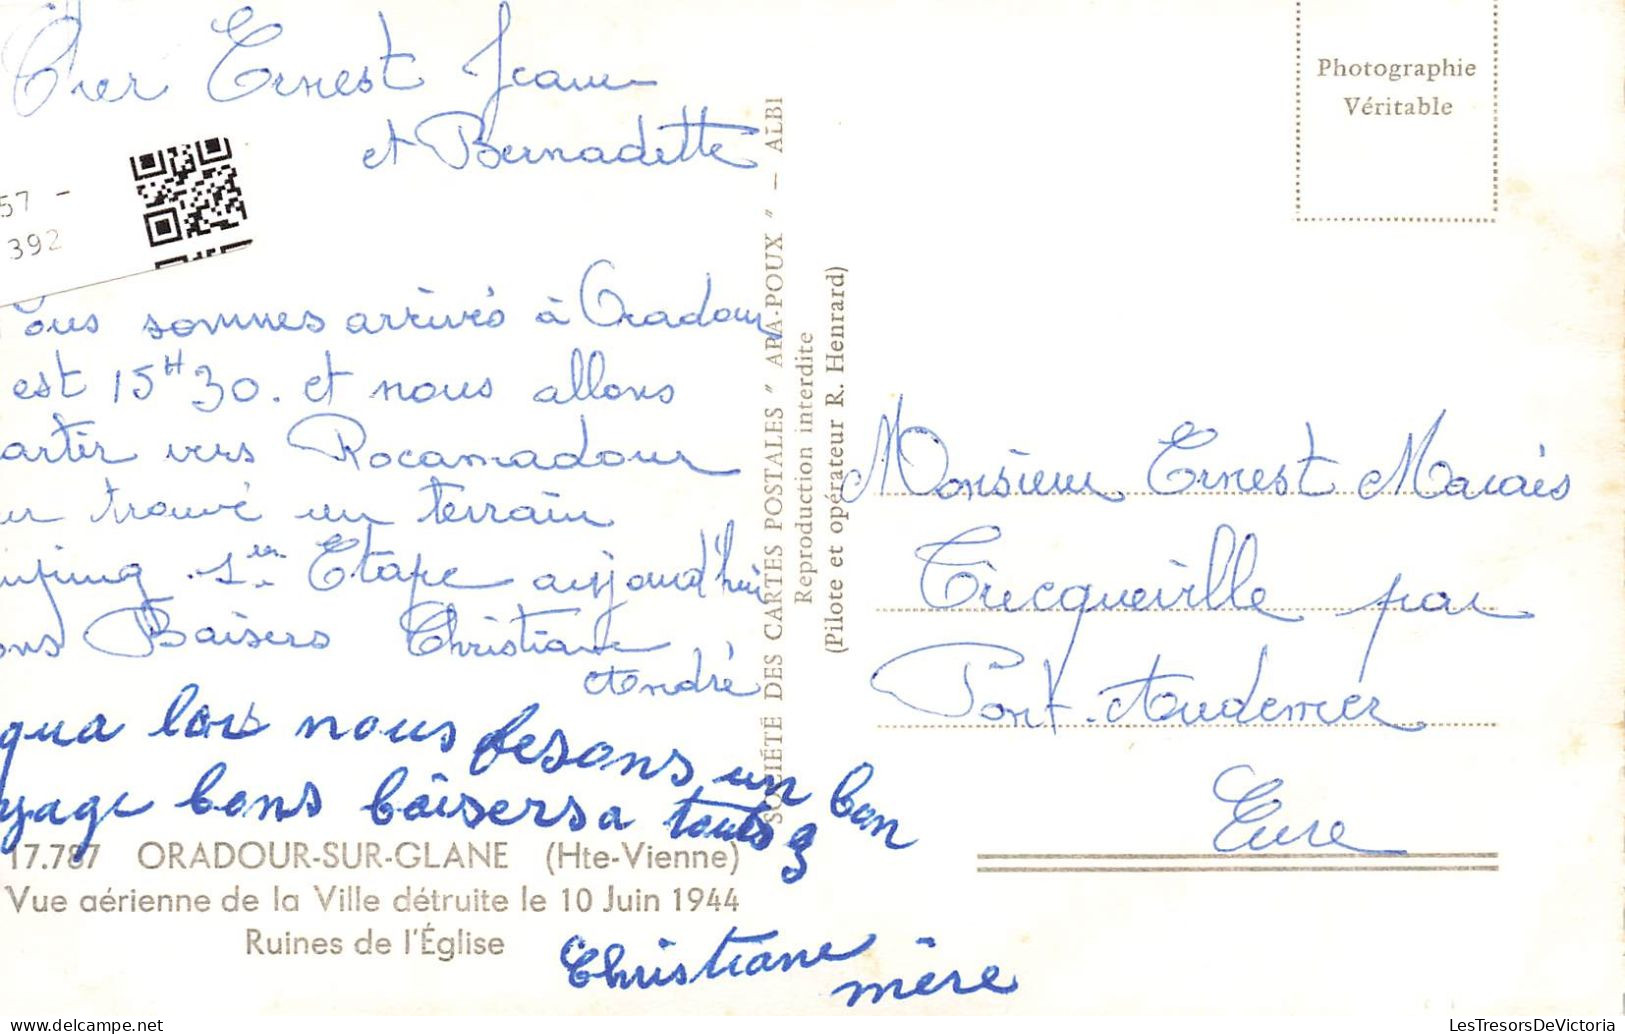 Cher Ernest Jeanne
et Bernadette
57 -
392
Nous sommes arrivés à Oradour
est 15H30. et nous allons
partir vers Rocamadour
trouvé un terrain
Etape aujourd'hui
Bons Baisers Christiane
André
lors nous fesons un bon
voyage bons baisers a touts 3
Christiane
mère
17.787 ORADOUR-SUR-GLANE (Hte-Vienne)
Vue aérienne de la Ville détruite le 10 Juin 1944
Ruines de l'Église
SOCIÉTÉ DES CARTES POSTALES "APA-POUX" - ALBI
Reproduction interdite
(Pilote et opérateur R. Henrard)
Photographie
Véritable
Monsieur Ernest Marais
Tricqueville par
Pont-Audemer
Eure
LesTresorsDeVictoria